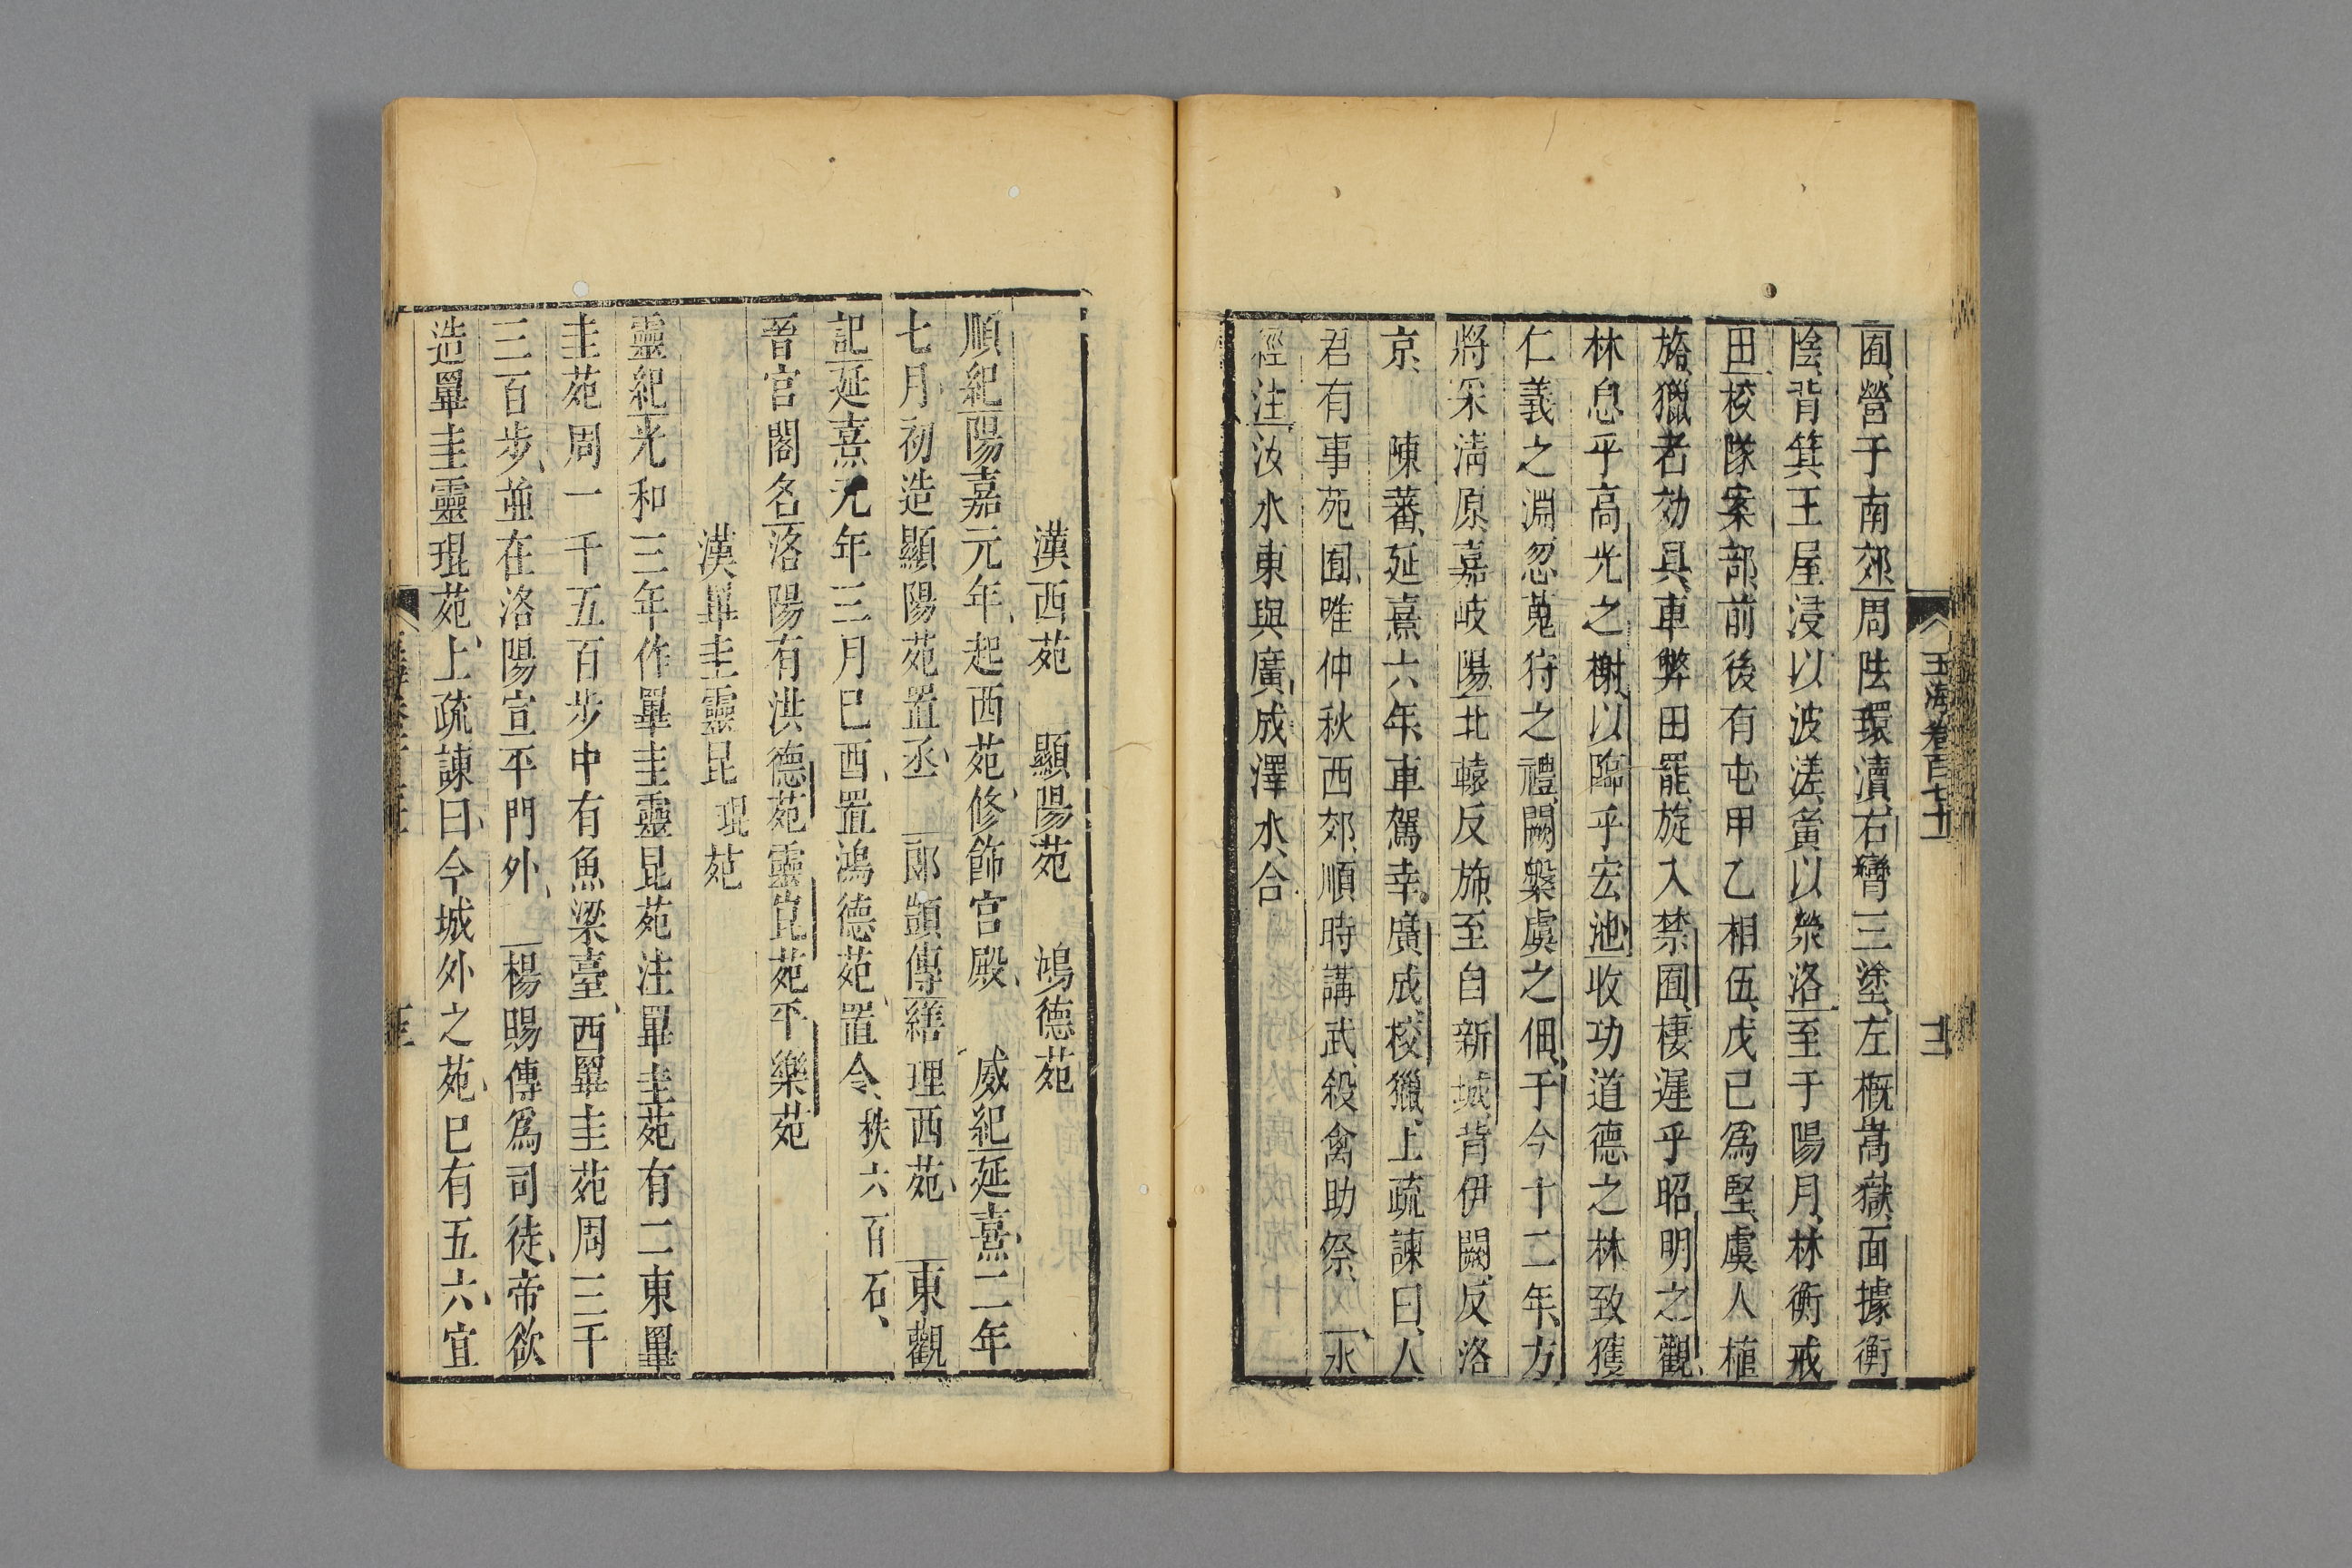 玉海卷百七十一
囿營于南郊周阹環瀆右矕三塗左概嵩嶽面據衡
陰背箕王屋浸以波溠演以滎洛至于陽月林衡戒
田校隊案部前後有屯甲乙相伍戊己爲堅虞人植
旍獵者効具車弊田罷旋入禁囿棲遲乎昭明之觀
林息乎高光之榭以臨乎宏池收功道德之林致獲
仁義之淵忽蒐狩之禮闕槃虞之佃于今十二年方
將采淸原嘉岐陽北轅反斾至自新城背伊闕反洛
京　陳蕃延熹六年車駕幸廣成校獵上疏諫曰人
君有事苑囿唯仲秋西郊順時講武殺禽助祭　水
經注汝水東與廣成澤水合
漢西苑　顯陽苑　鴻德苑
順紀陽嘉元年起西苑修飾宫殿　威紀延熹二年
七月初造顯陽苑置丞　郞顗傳繕理西苑　東觀
記延熹元年三月巳酉置鴻德苑置令秩六百石
晉宫閣名洛陽有洪德苑靈崑苑平樂苑
漢罼圭靈昆琨苑
靈紀光和三年作罼圭靈昆苑注罼圭苑有二東罼
圭苑周一千五百步中有魚梁臺西罼圭苑周三千
三百步並在洛陽宣平門外　楊賜傳爲司徒帝欲
造罼圭靈琨苑上疏諫曰今城外之苑巳有五六宜